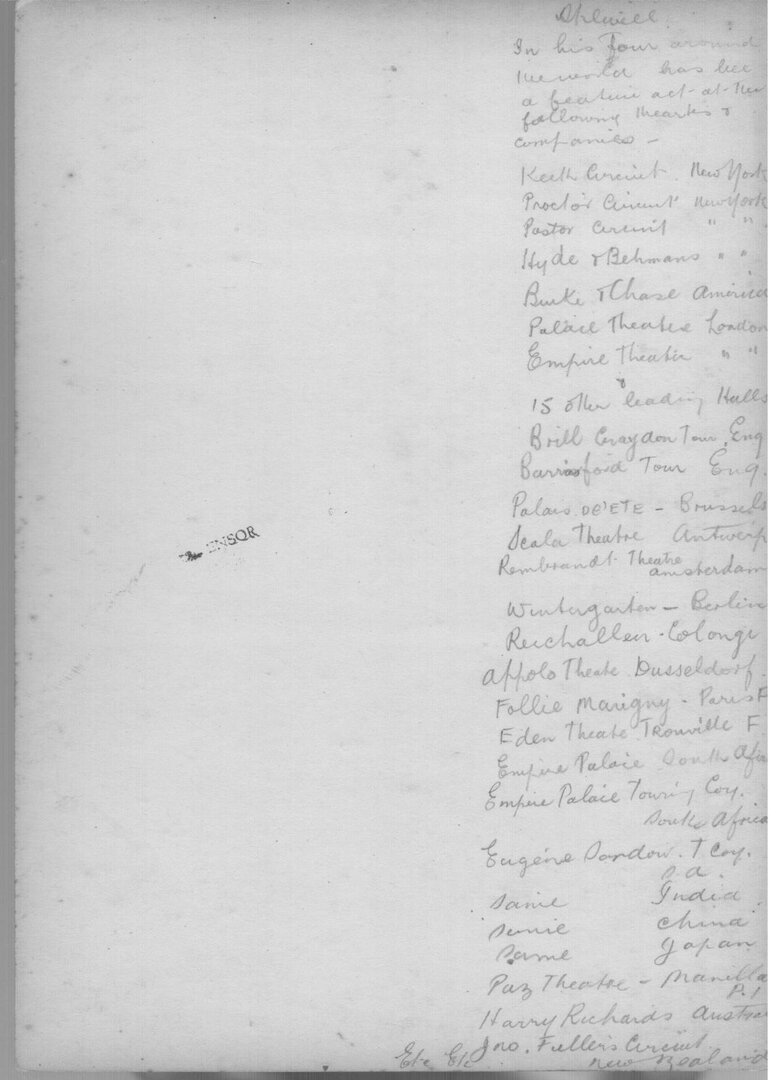 In his Tour around
the world has bee
a feature act at the
following theartes &
companies —
Keith Circuit. New York
Proctor Circuit New York
Pastor Circuit " "
Hyde & Behmans " "
Burke & Chase America
Palace Theatre London
Empire Theatre " "
&
15 other leading Halls
Brill Craydon Tour. Eng
Barrasford Tour Eng.
Palais DE'ETE — Brussels
Scala Theatre Antwerp
Rembrandt Theatre
amsterdam
ENSOR
Wintergarten — Berlin
Reichallen - Colonge
Appolo Theate Dusseldorf.
Follie Marigny - Paris F
Eden Theate Trouville F
Empire Palace South Afri
Empire Palace Touring Coy.
South Africa
Eugene Sandow. T Coy.
S.A.
Same India
Same China
Same Japan
Paz Theatre — Manilla
P.I
Harry Richards Austra
Jno. Fullers Circuit
Etc Etc New Zealand